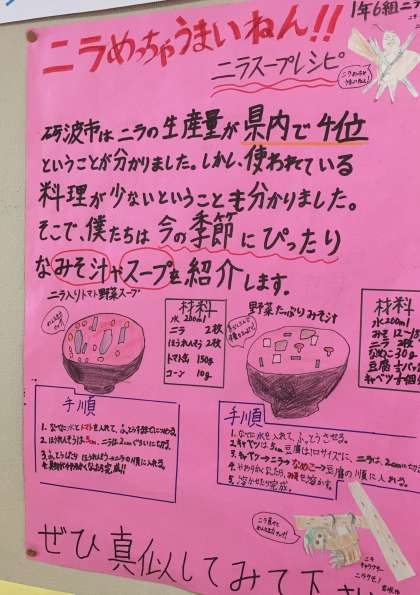 ニラめっちゃうまいねん!!
1年6組ニラ
ニラスープレシピ
ニラめっちゃ
うまいねん!
砺波市はニラの生産量が県内で4位
ということが分かりました。しかし、使われている
料理が少ないということも分かりました。
そこで、僕たちは今の季節にぴったり
なみそ汁やスープを紹介します。
ニラ入りトマト野菜スープ
材料
水 200ml
ニラ 2枚
ほうれんそう 2枚
トマト缶 150g
コーン 10g
手順
1. なべに水とトマトを入れて、ふっとう
2. ほうれんそうは5cm、ニラは2cmぐらいに切る。
3. ふっとうしたら ほうれんそう→ニラの順に入れる。
野菜たっぷりみそ汁
材料
水200ml
みそ 12~15
ニラ 2枚
なめこ 30g
豆腐
キャベツ
手順
1. なべに水を入れて、ふっとうさせる。
2. キャベツは5cm 豆腐は1口サイズに、ニラは、2cmに切る
3. キャベツ→ニラ→なめこ→豆腐の順に入れる。
4. やわらかくなったら、みそを溶かす。
5. 溶かせたら完成。
ぜひ真似してみて下さい
ニラ
キャラクター
ニラクモ!